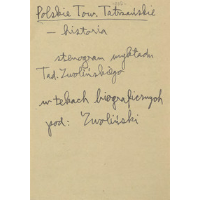 Polskie Tow. Tatrzańskie
– historia
stenogram wykładu
Tad. Zwolińskiego
w tekach biograficznych
pod: Zwoliński